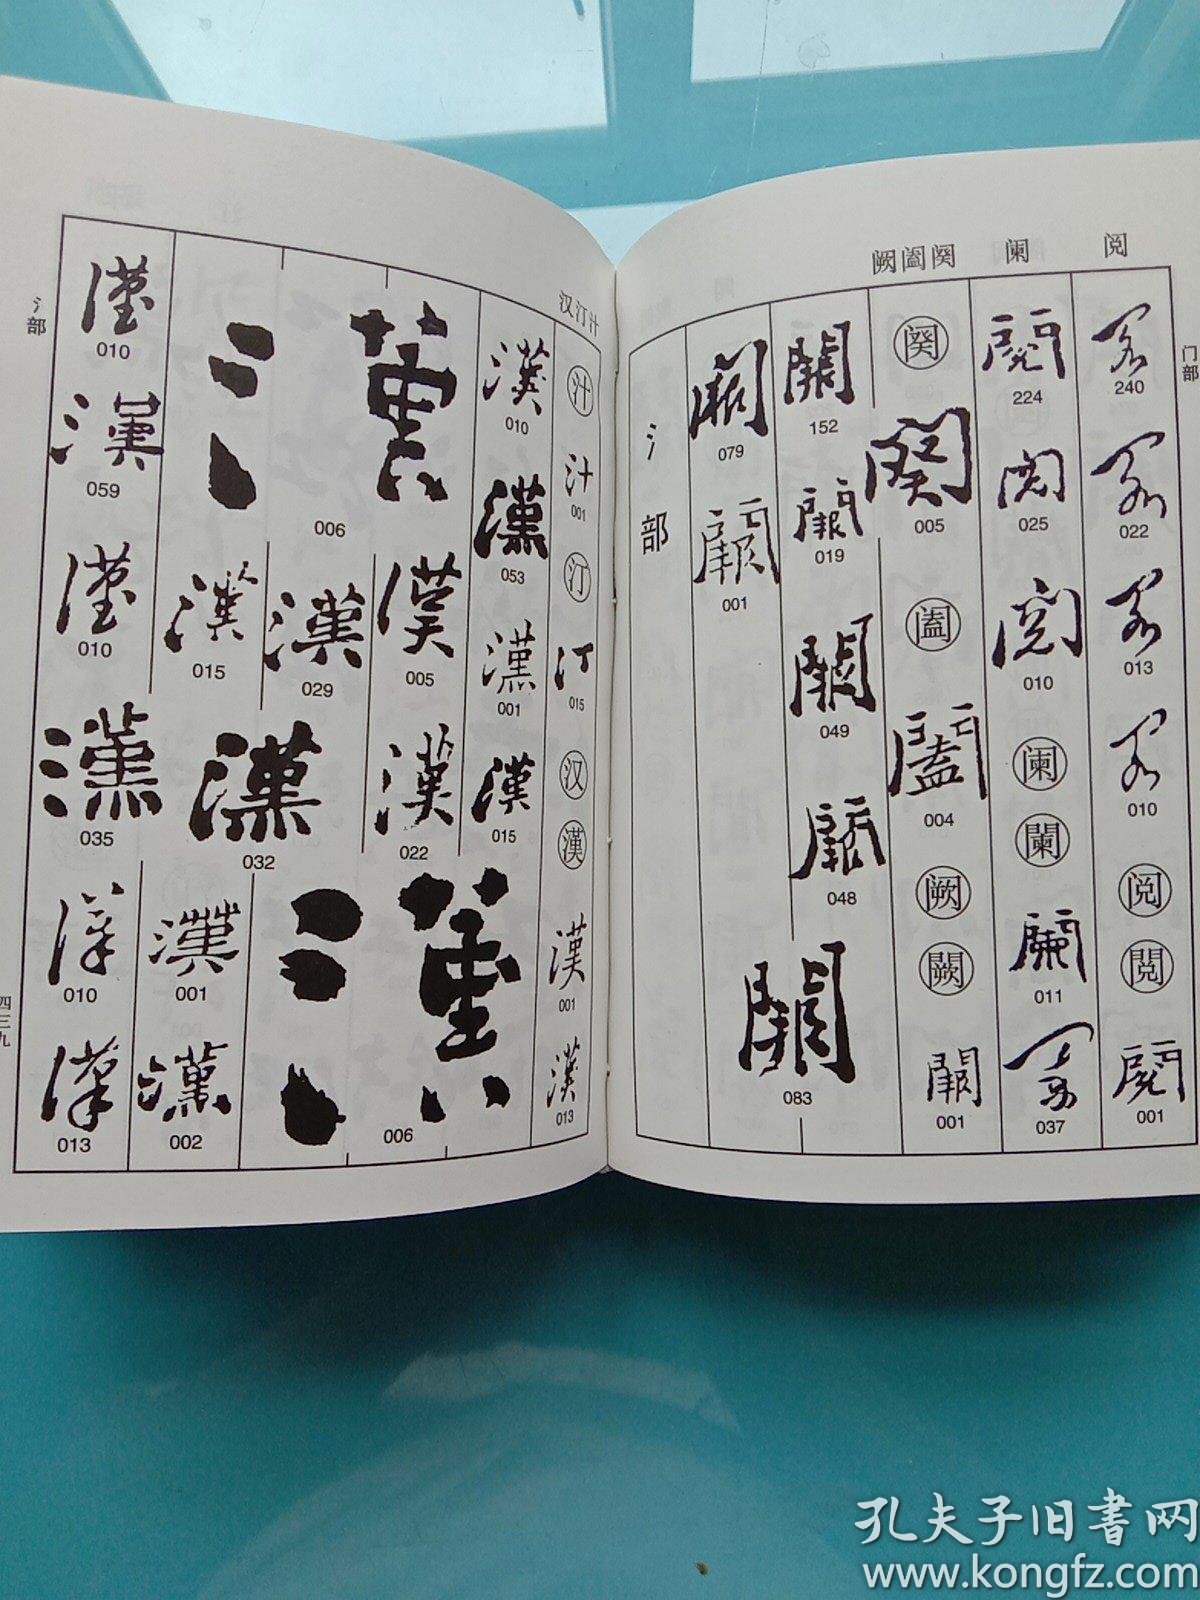 阅 阑 阕阖阙
门部
240
022
013
010
阅
閱
閱
001
閱
224
閱
025
閱
010
阑
闌
闌
011
037
阕
闋
005
阖
闔
004
阙
闕
闕
001
闕
152
闕
019
闕
049
闕
048
闕
083
闕
079
闕
001
氵部
汁汀汉
汁
汁
001
汀
汀
015
汉
漢
漢
001
漢
013
漢
010
漢
053
漢
001
漢
015
漢
006
漢
005
漢
022
漢
006
漢
029
漢
032
漢
015
漢
001
漢
002
漢
010
漢
059
漢
010
漢
035
漢
010
漢
013
氵部
四三九
孔夫子旧書网
www.kongfz.com